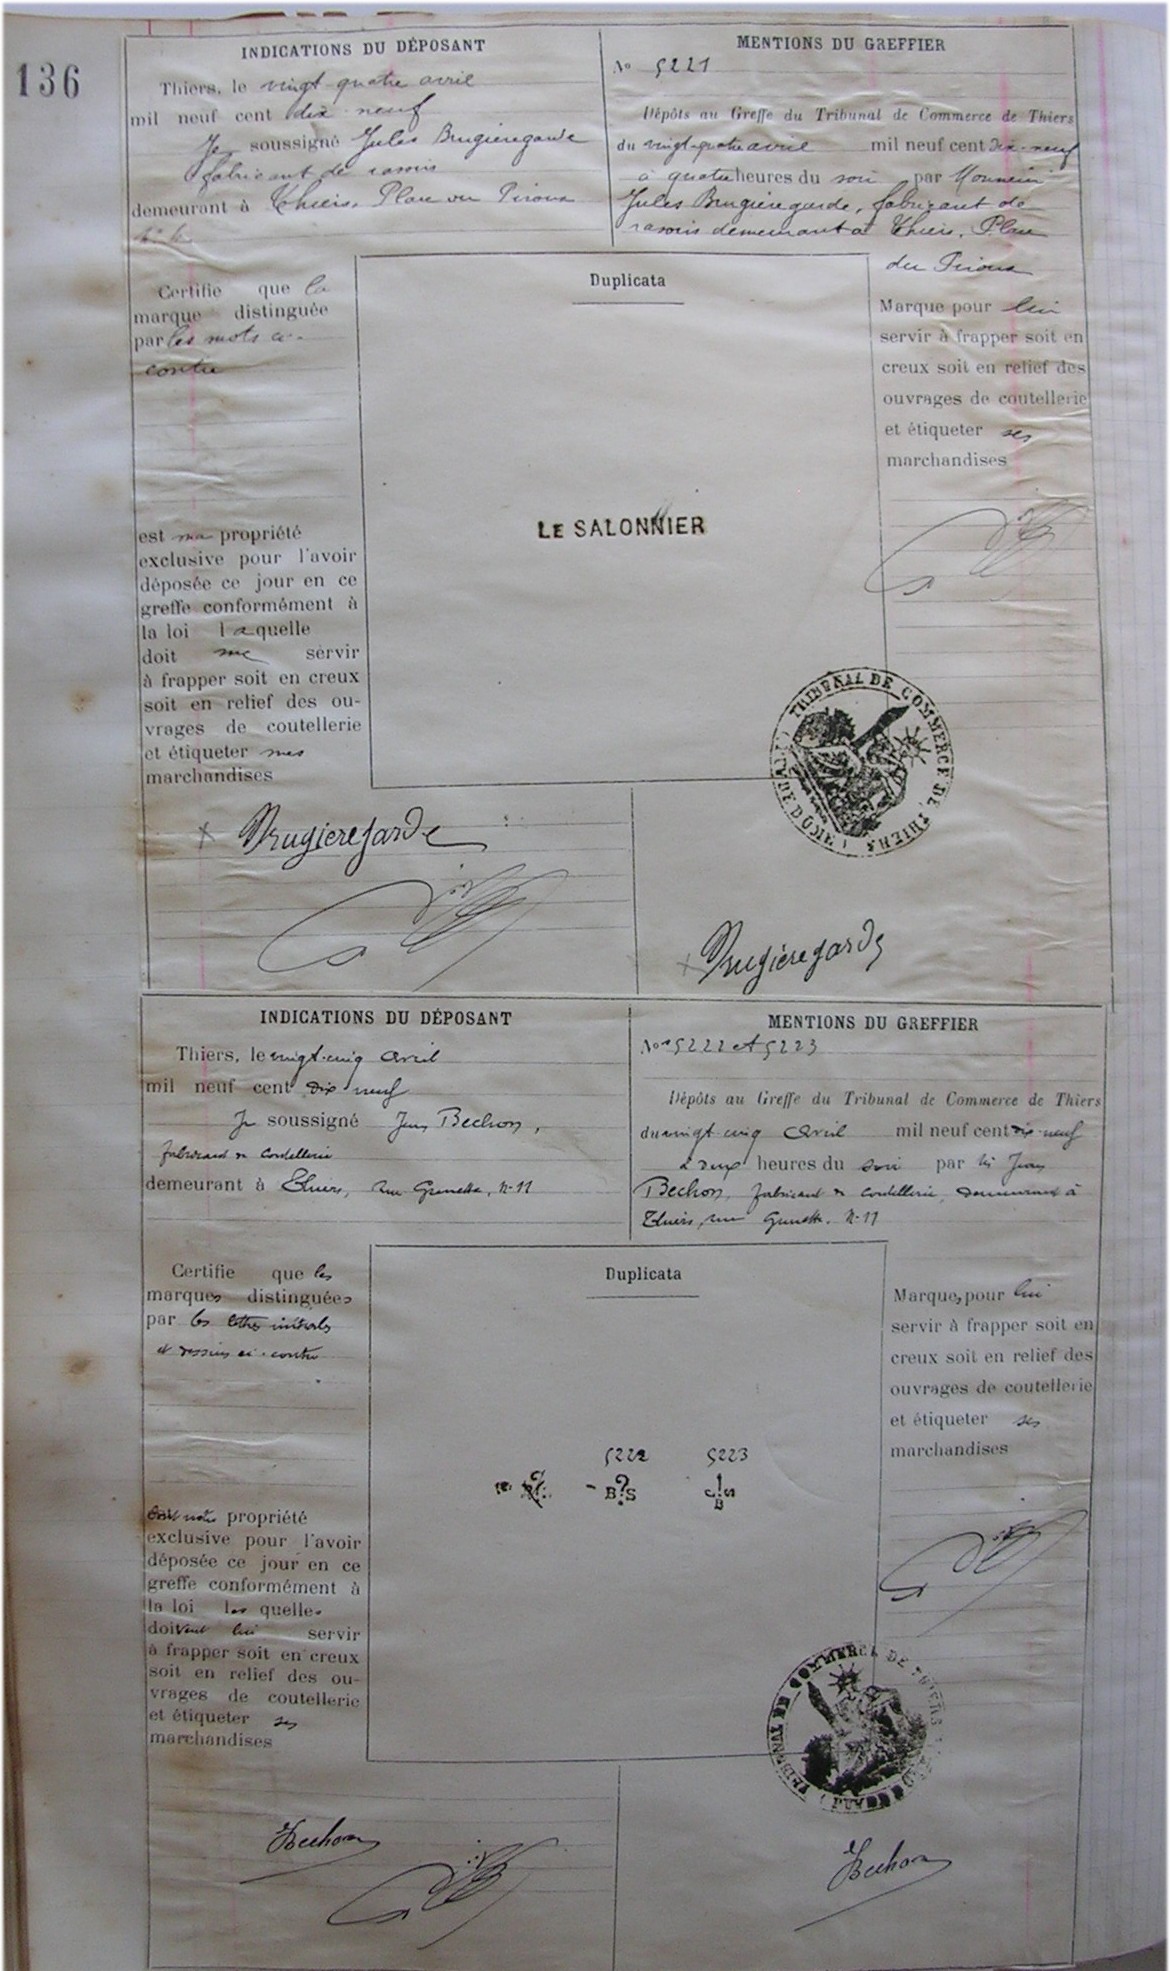 136
INDICATIONS DU DÉPOSANT
Thiers, le vingt quatre avril
mil neuf cent dix-neuf
Je soussigné Jules Brugieregarde
fabricant de rasoirs
demeurant à Thiers, Place du Piroux
Certifie que la
marque distinguée
par les mots ci-
contre
est ma propriété
exclusive pour l'avoir
déposée ce jour en ce
greffe conformément à
la loi laquelle
doit me servir
à frapper soit en creux
soit en relief des ou-
vrages de coutellerie
et étiqueter mes
marchandises
Brugieregarde
MENTIONS DU GREFFIER
No 5221
Dépôts au Greffe du Tribunal de Commerce de Thiers
du vingt-quatre avril mil neuf cent dix-neuf
à quatre heures du soir par Monsieur
Jules Brugieregarde, fabricant de
rasoirs demeurant à Thiers, Place
du Piroux
Duplicata
LE SALONNIER
Marque pour lui
servir à frapper soit en
creux soit en relief des
ouvrages de coutellerie
et étiqueter ses
marchandises
TRIBUNAL DE COMMERCE DE THIERS (PUY-DE-DÔME)
Brugieregarde
INDICATIONS DU DÉPOSANT
Thiers, le vingt-cinq avril
mil neuf cent dix neuf
Je soussigné Jean Bechon,
fabricant de coutellerie
demeurant à Thiers, rue Grenette, N-11
Certifie que les
marques distinguées
par les lettres initiales
et dessins ci-contre
propriété
exclusive pour l'avoir
déposée ce jour en ce
greffe conformément à
la loi les quelles
doivent lui servir
à frapper soit en creux
soit en relief des ou-
vrages de coutellerie
et étiqueter ses
marchandises
JBechon
MENTIONS DU GREFFIER
Nos 5222 et 5223
Dépôts au Greffe du Tribunal de Commerce de Thiers
du vingt cinq avril mil neuf cent dix-neuf
à deux heures du soir par Mr Jean
Bechon, fabricant de coutellerie, demeurant à
Thiers, rue Grenette, N-11
Duplicata
5222 5223
B?S C!S
B
Marques pour lui
servir à frapper soit en
creux soit en relief des
ouvrages de coutellerie
et étiqueter ses
marchandises
TRIBUNAL DE COMMERCE DE THIERS (PUY-DE-DÔME)
JBechon